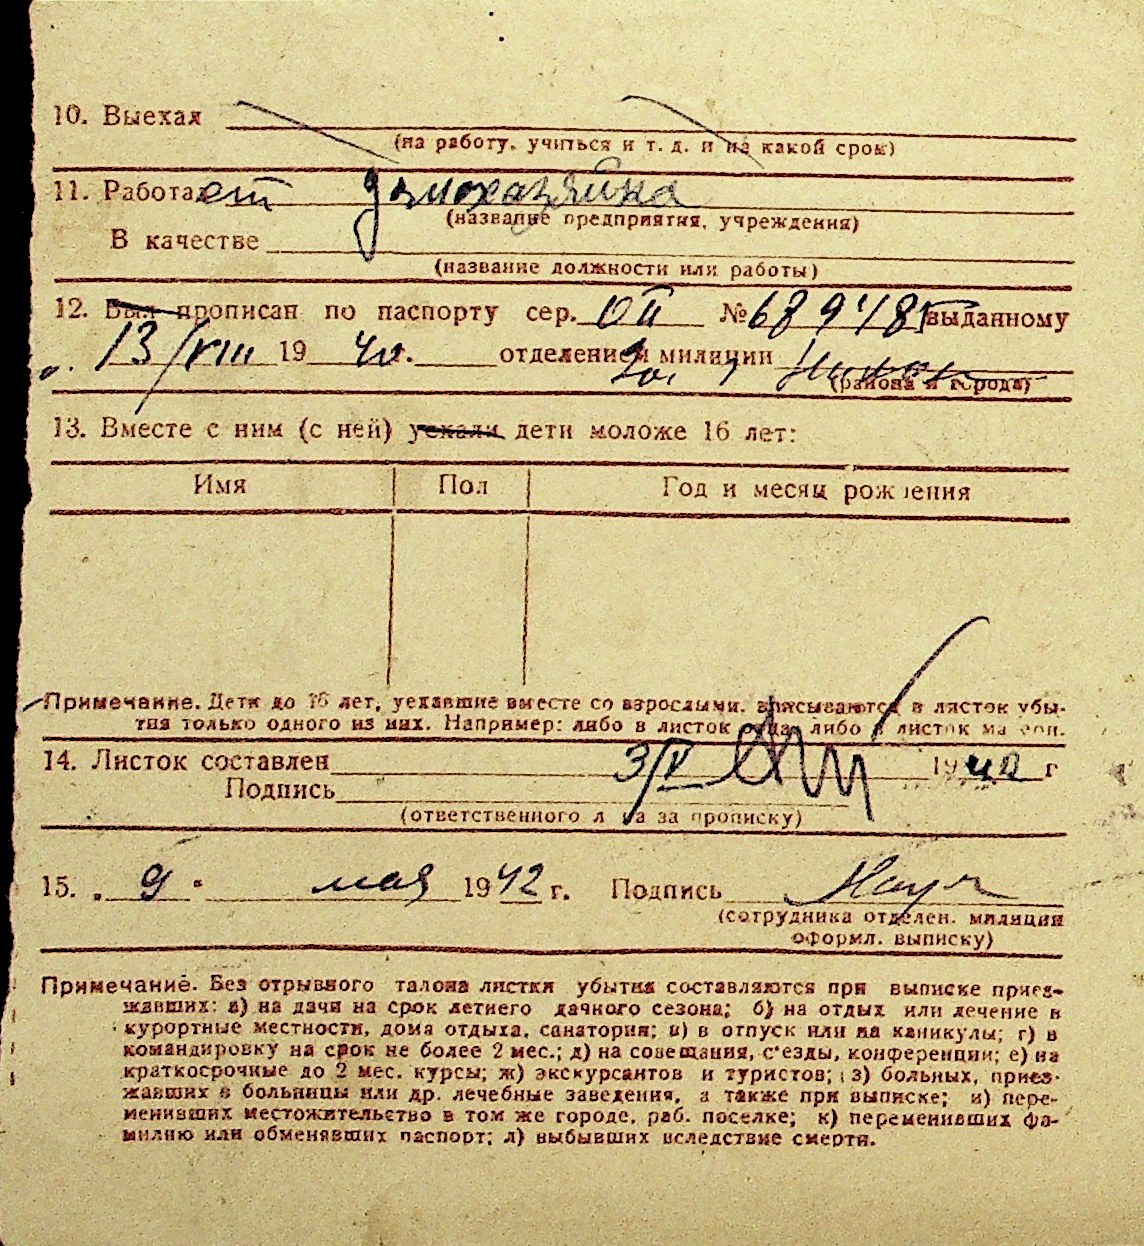 10. Выехал
(на работу, учиться и т. д. и на какой срок)
11. Работает домохозяйка
(название предприятия, учреждения)
В качестве
(название должности или работы)
12. Был прописан по паспорту сер. № 689485 выданному
13/VIII 1940. отделением милиции
(района и города)
13. Вместе с ним (с ней) уехали дети моложе 16 лет:
Имя Пол Год и месяц рождения
Примечание. Дети до 16 лет, уехавшие вместе со взрослыми, вписываются в листок убы-
тия только одного из них. Например: либо в листок отца, либо в листок матери.
14. Листок составлен 3/V 1942 г
Подпись
(ответственного лица за прописку)
15. „9" мая 1942 г. Подпись
(сотрудника отделен. милиции
оформл. выписку)
Примечание. Без отрывного талона листки убытия составляются при выписке приез-
жавших: а) на дачи на срок летнего дачного сезона; б) на отдых или лечение в
курортные местности, дома отдыха, санатория; в) в отпуск или на каникулы; г) в
командировку на срок не более 2 мес.; д) на совещания, с'езды, конференции; е) на
краткосрочные до 2 мес. курсы; ж) экскурсантов и туристов; з) больных, приез-
жавших в больницы или др. лечебные заведения, а также при выписке; и) пере-
менивших местожительство в том же городе, раб. поселке; к) переменивших фа-
милию или обменявших паспорт; л) выбывших вследствие смерти.